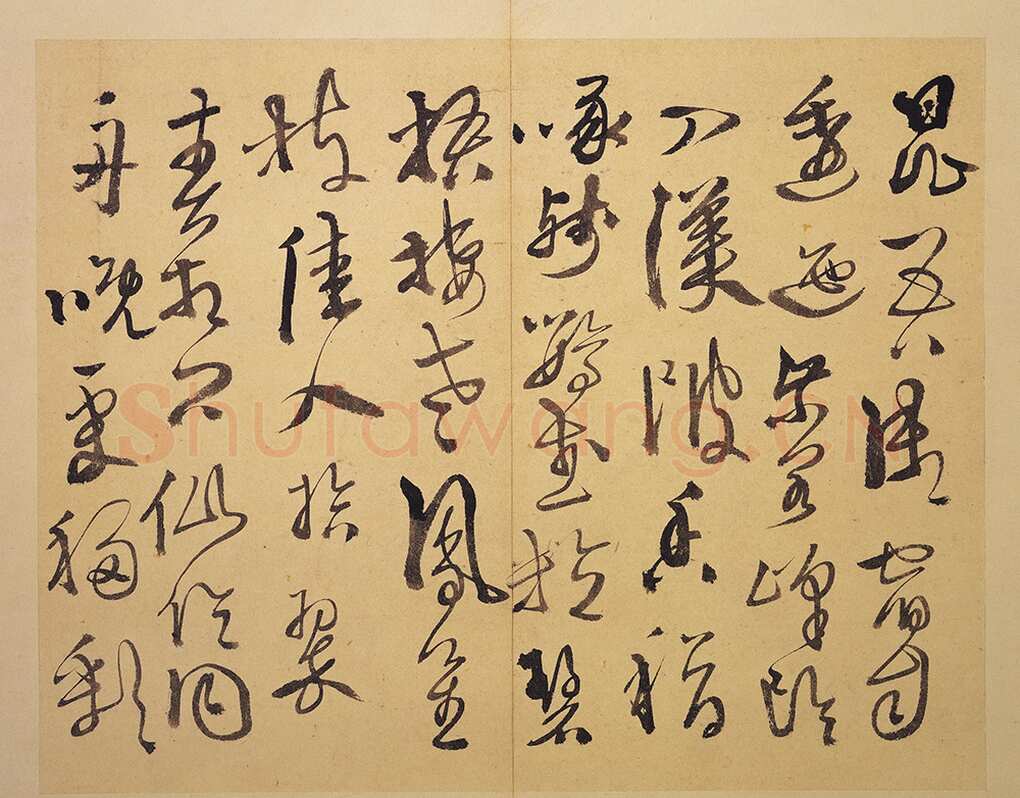 昆吾御宿自
逶迤紫閣峰陰
入渼陂香稻
啄殘鸚鵡粒碧
梧棲老鳳凰
枝佳人拾翠
春相問仙侶同
舟晚更移彩
Shufawang.CN